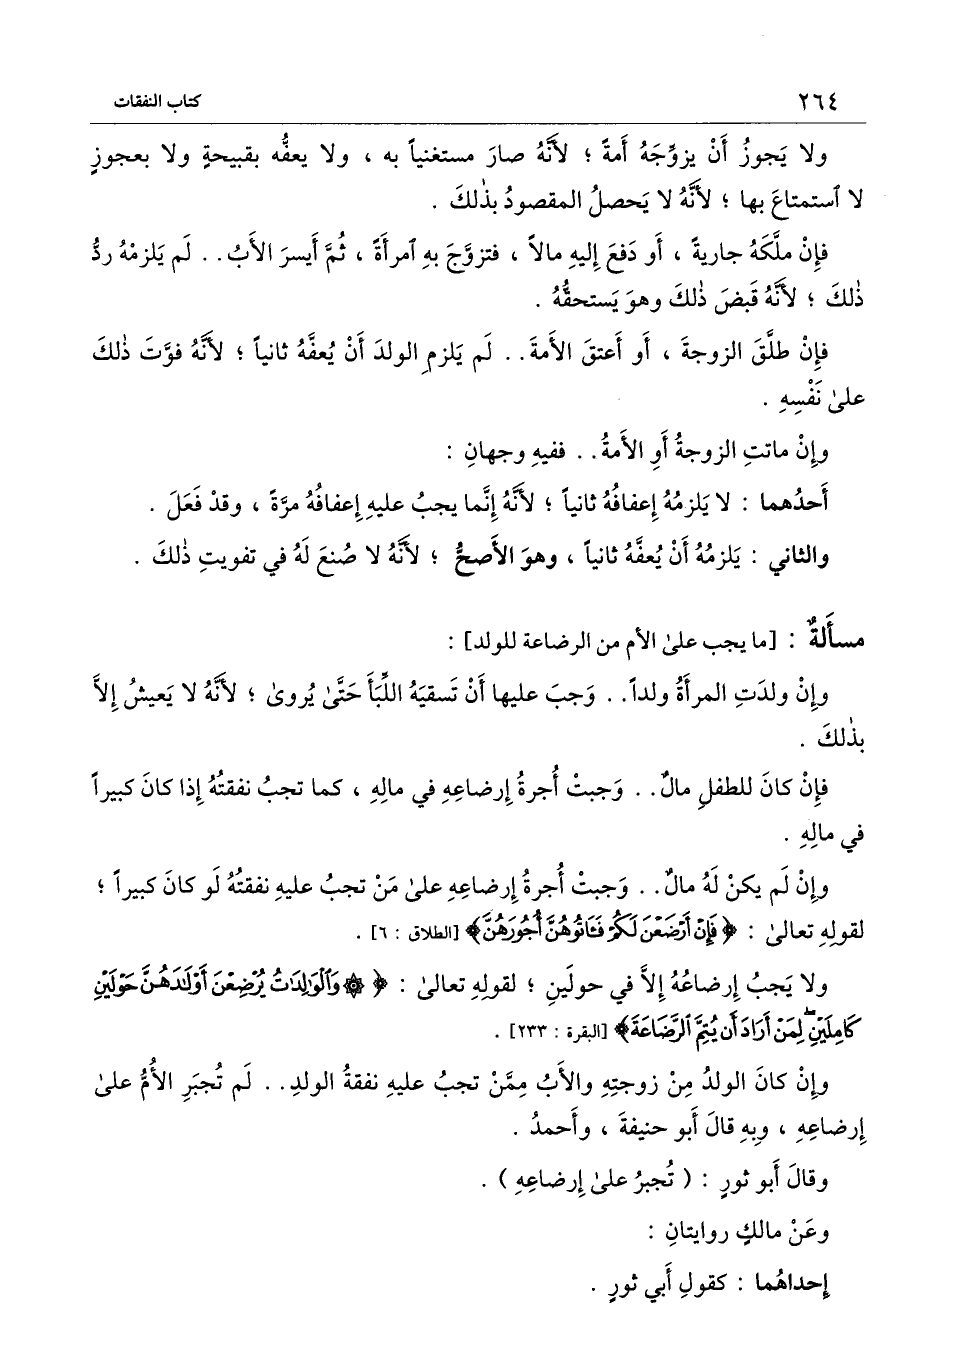 ٢٦٤ كتاب النفقات
ولا يَجوزُ أَنْ يزوِّجَهُ أمةً ؛ لأَنَّهُ صارَ مستغنياً به ، ولا يعفُّه بقبيحةٍ ولا بعجوزٍ
لا ٱستمتاعَ بها ؛ لأَنَّهُ لا يَحصلُ المقصودُ بذٰلكَ .
فإِنْ ملَّكَهُ جاريةً ، أَو دَفعَ إِليهِ مالاً ، فتزوَّجَ بهِ ٱمرأَةً ، ثُمَّ أَيسرَ الأَبُ . . لَم يَلزمْهُ ردُّ
ذٰلكَ ؛ لأَنَّهُ قَبضَ ذٰلكَ وهوَ يَستحقُّهُ .
فإِنْ طلَّقَ الزوجةَ ، أَو أَعتقَ الأَمةَ . . لَم يَلزمِ الولدَ أَنْ يُعفَّهُ ثانياً ؛ لأَنَّهُ فوَّتَ ذٰلكَ
علىٰ نَفْسِهِ .
وإِنْ ماتتِ الزوجةُ أَوِ الأَمةُ . . ففيهِ وجهانِ :
أَحدُهما : لا يَلزمُهُ إِعفافُهُ ثانياً ؛ لأَنَّهُ إِنَّما يجبُ عليهِ إِعفافُهُ مرَّةً ، وقدْ فَعَلَ .
والثاني : يَلزمُهُ أَنْ يُعفَّهُ ثانياً ، وهوَ الأَصحُّ ؛ لأَنَّهُ لا صُنعَ لَهُ في تفويتِ ذٰلكَ .
مسأَلةٌ : [ما يجب علىٰ الأم من الرضاعة للولد] :
وإِنْ ولدَتِ المرأَةُ ولداً . . وَجبَ عليها أَنْ تَسقيَهُ اللِّبَأَ حَتَّىٰ يُروىٰ ؛ لأَنَّهُ لا يَعيشُ إِلاَّ
بذٰلكَ .
فإِنْ كانَ للطفلِ مالٌ . . وَجبتْ أُجرةُ إِرضاعِهِ في مالِهِ ، كما تجبُ نفقتُهُ إِذا كانَ كبيراً
في مالِهِ .
وإِنْ لَم يكنْ لَهُ مالٌ . . وَجبتْ أُجرةُ إِرضاعِهِ علىٰ مَنْ تجبُ عليهِ نفقتُهُ لَو كانَ كبيراً ؛
لقولِهِ تعالىٰ : ﴿فَإِنْ أَرْضَعْنَ لَكُمْ فَـَٔاتُوهُنَّ أُجُورَهُنَّ﴾ [الطلاق : ٦] .
ولا يَجبُ إِرضاعُهُ إِلاَّ في حولَينِ ؛ لقولِهِ تعالىٰ : ﴿ ۞ وَٱلْوَٰلِدَٰتُ يُرْضِعْنَ أَوْلَٰدَهُنَّ حَوْلَيْنِ
كَامِلَيْنِ ۖ لِمَنْ أَرَادَ أَن يُتِمَّ ٱلرَّضَاعَةَ﴾ [البقرة : ٢٣٣] .
وإِنْ كانَ الولدُ مِنْ زوجتِهِ والأَبُ مِمَّنْ تجبُ عليهِ نفقةُ الولدِ . . لَم تُجبَرِ الأُمُّ علىٰ
إِرضاعِهِ ، وبِهِ قالَ أَبو حنيفةَ ، وأَحمدُ .
وقالَ أَبو ثورٍ : ( تُجبرُ علىٰ إِرضاعِهِ ) .
وعَنْ مالكٍ روايتانِ :
إِحداهُما : كقولِ أَبي ثورٍ .